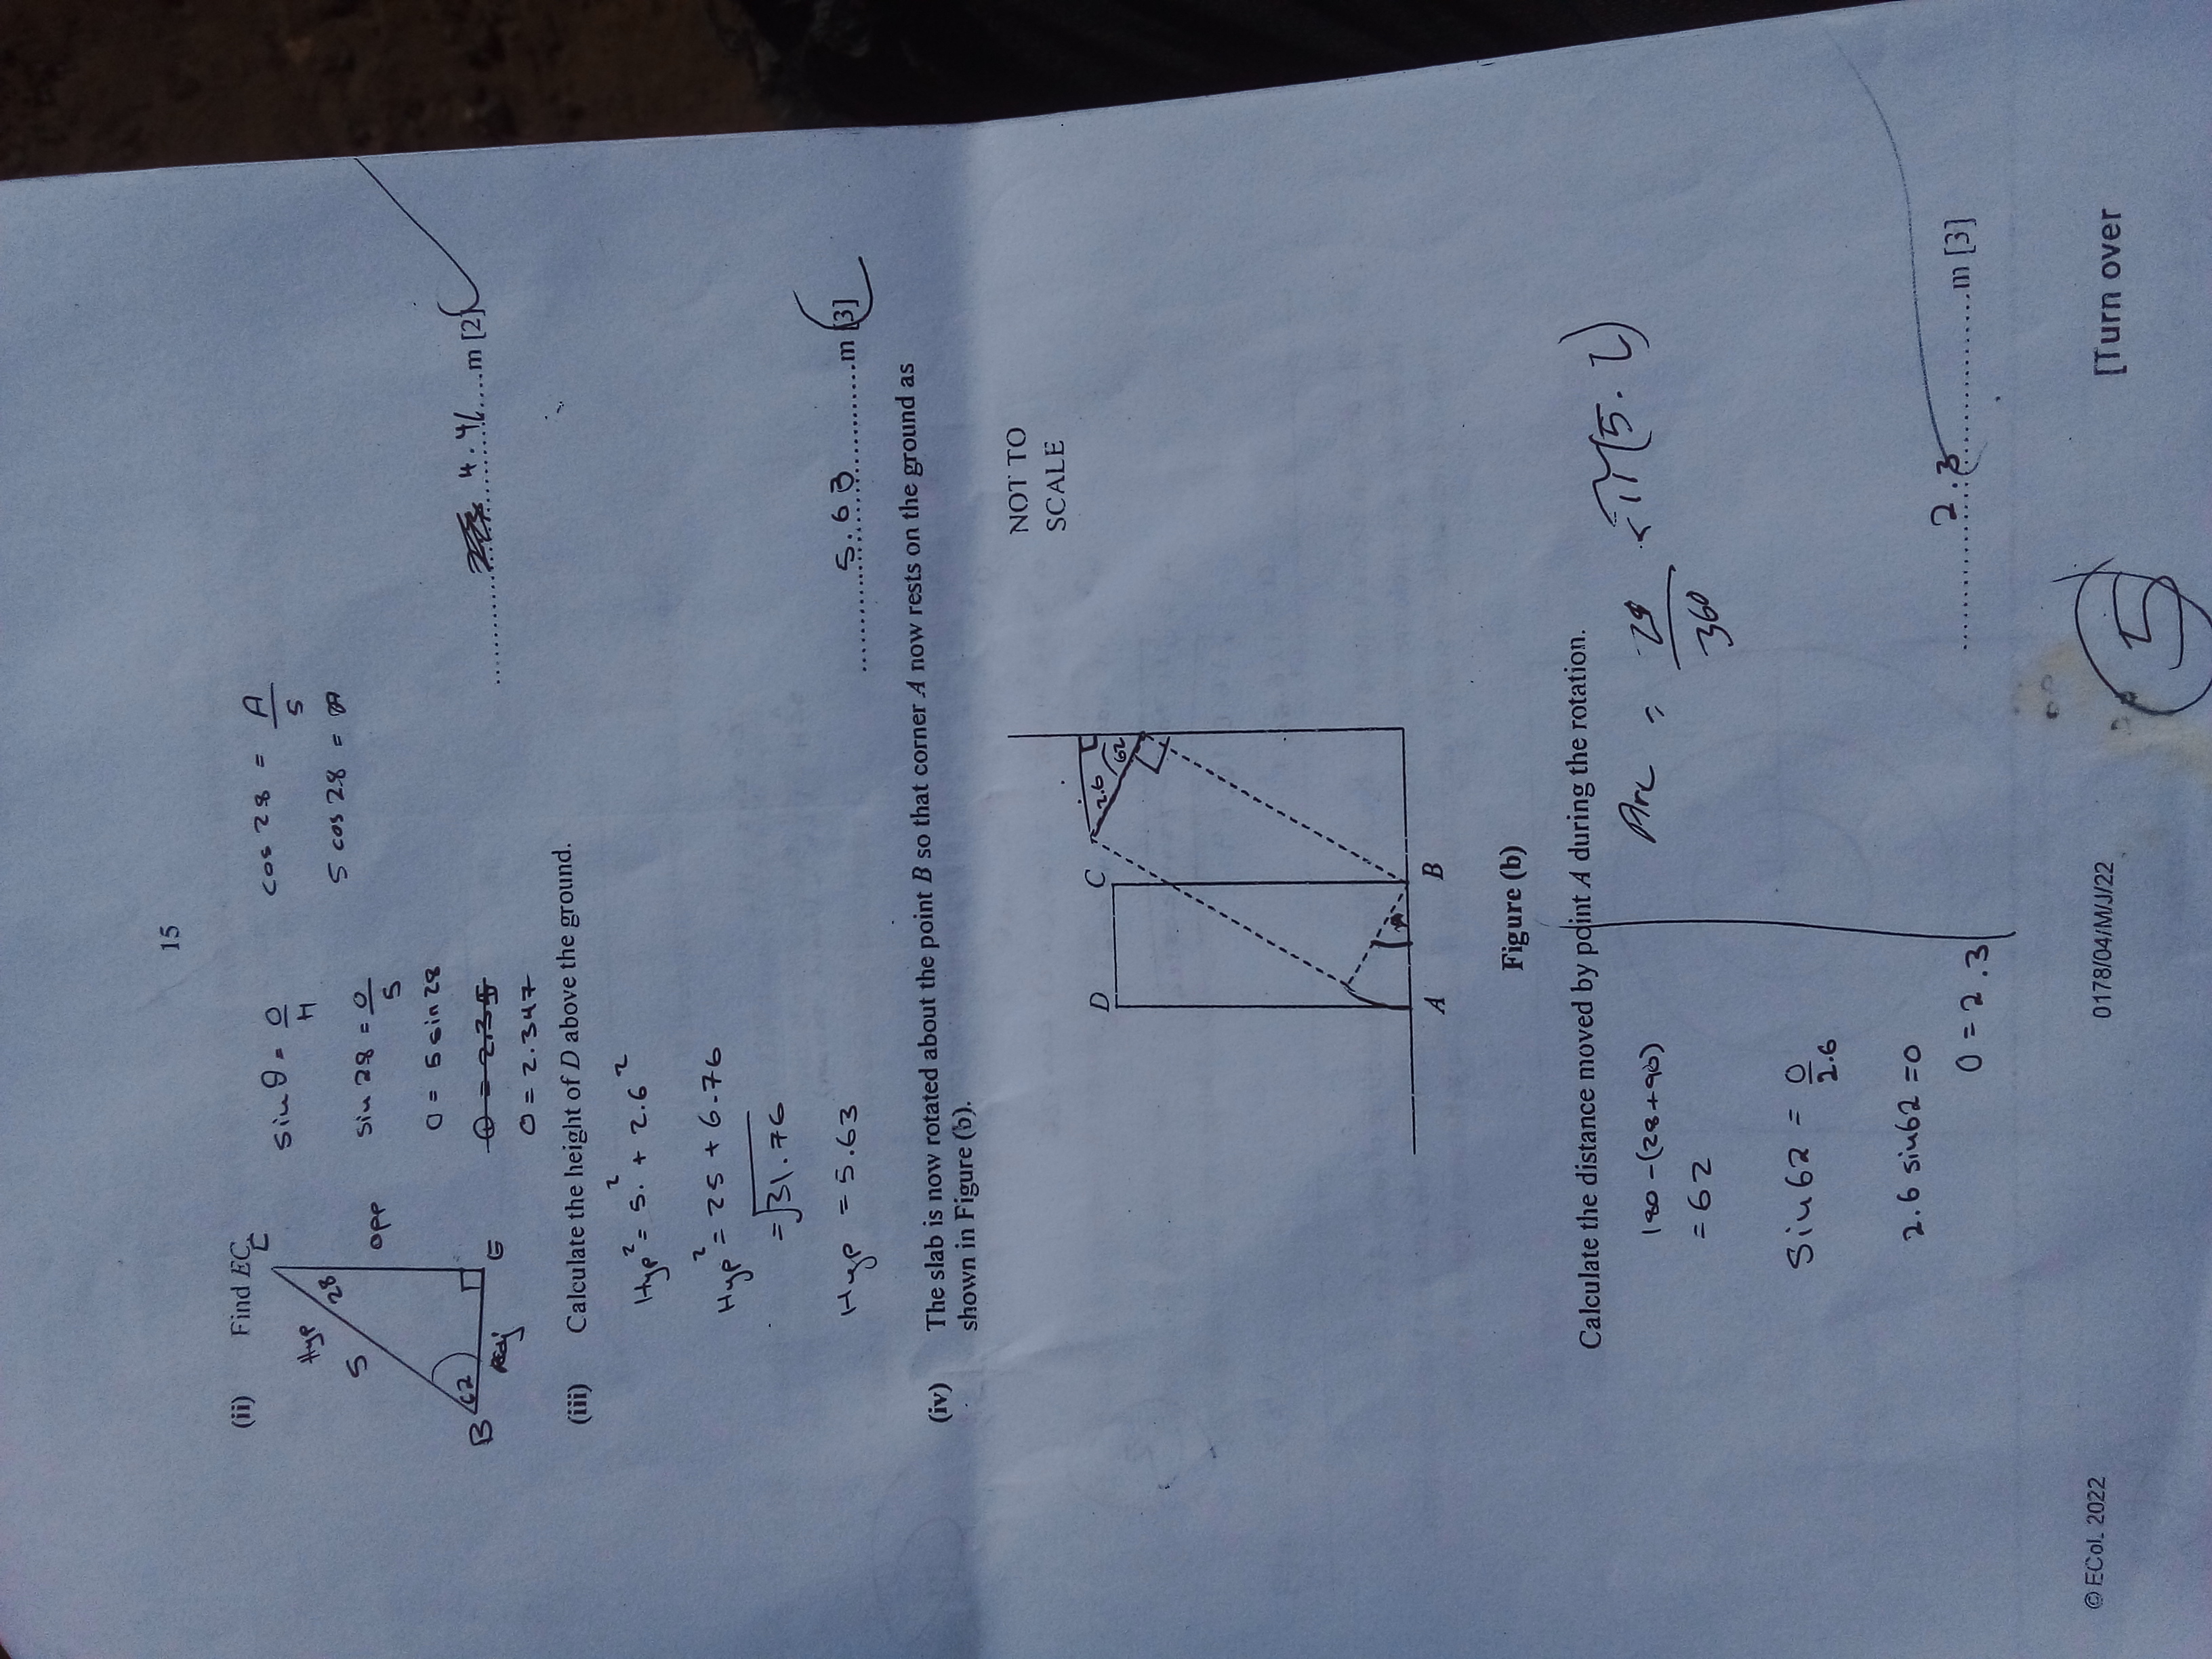 15
(ii) Find EC.
C
Hyp
28
5
opp
B
62
Adj
E
sin θ = O/H
sin 28 = O/5
O = 5 sin 28
O = 2.35
O = 2.347
cos 28 = A/5
5 cos 28 = A
4.41 m [2]
(iii) Calculate the height of D above the ground.
Hyp² = 5.² + 2.6²
Hyp² = 25 + 6.76
= √31.76
Hyp = 5.63
5.63 m [3]
(iv) The slab is now rotated about the point B so that corner A now rests on the ground as
shown in Figure (b).
NOT TO
SCALE
D
C
2.6
62
A
B
Figure (b)
Calculate the distance moved by point A during the rotation.
180 - (28 + 90)
= 62
Sin 62 = O/2.6
2.6 sin 62 = O
O = 2.3
Arc = 28/360 × π(5.2)
2.3 m [3]
© ECoL 2022
0178/04/M/J/22
[Turn over
5